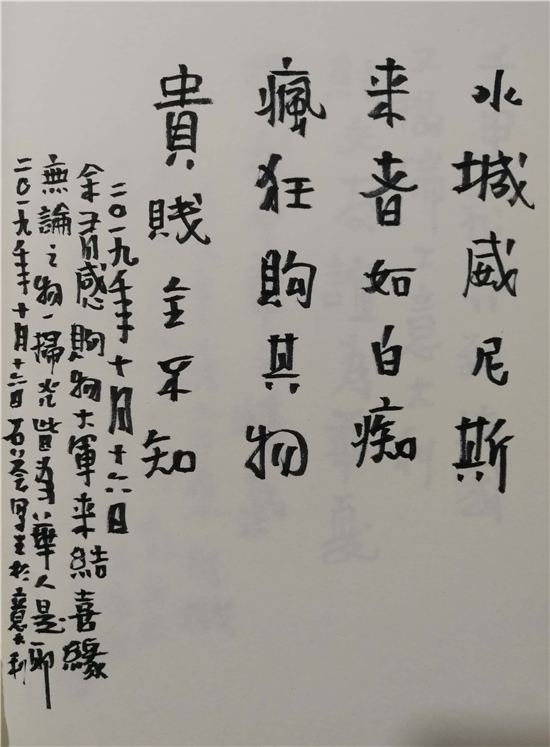 水城威尼斯
来者如白痴
瘋狂购其物
貴贱全不知
二〇一九年十月十六日
余有感购物大軍来結喜緣
無論之物一掃光皆為華人是耶
二〇一九年十月十六日石 写生於意大利